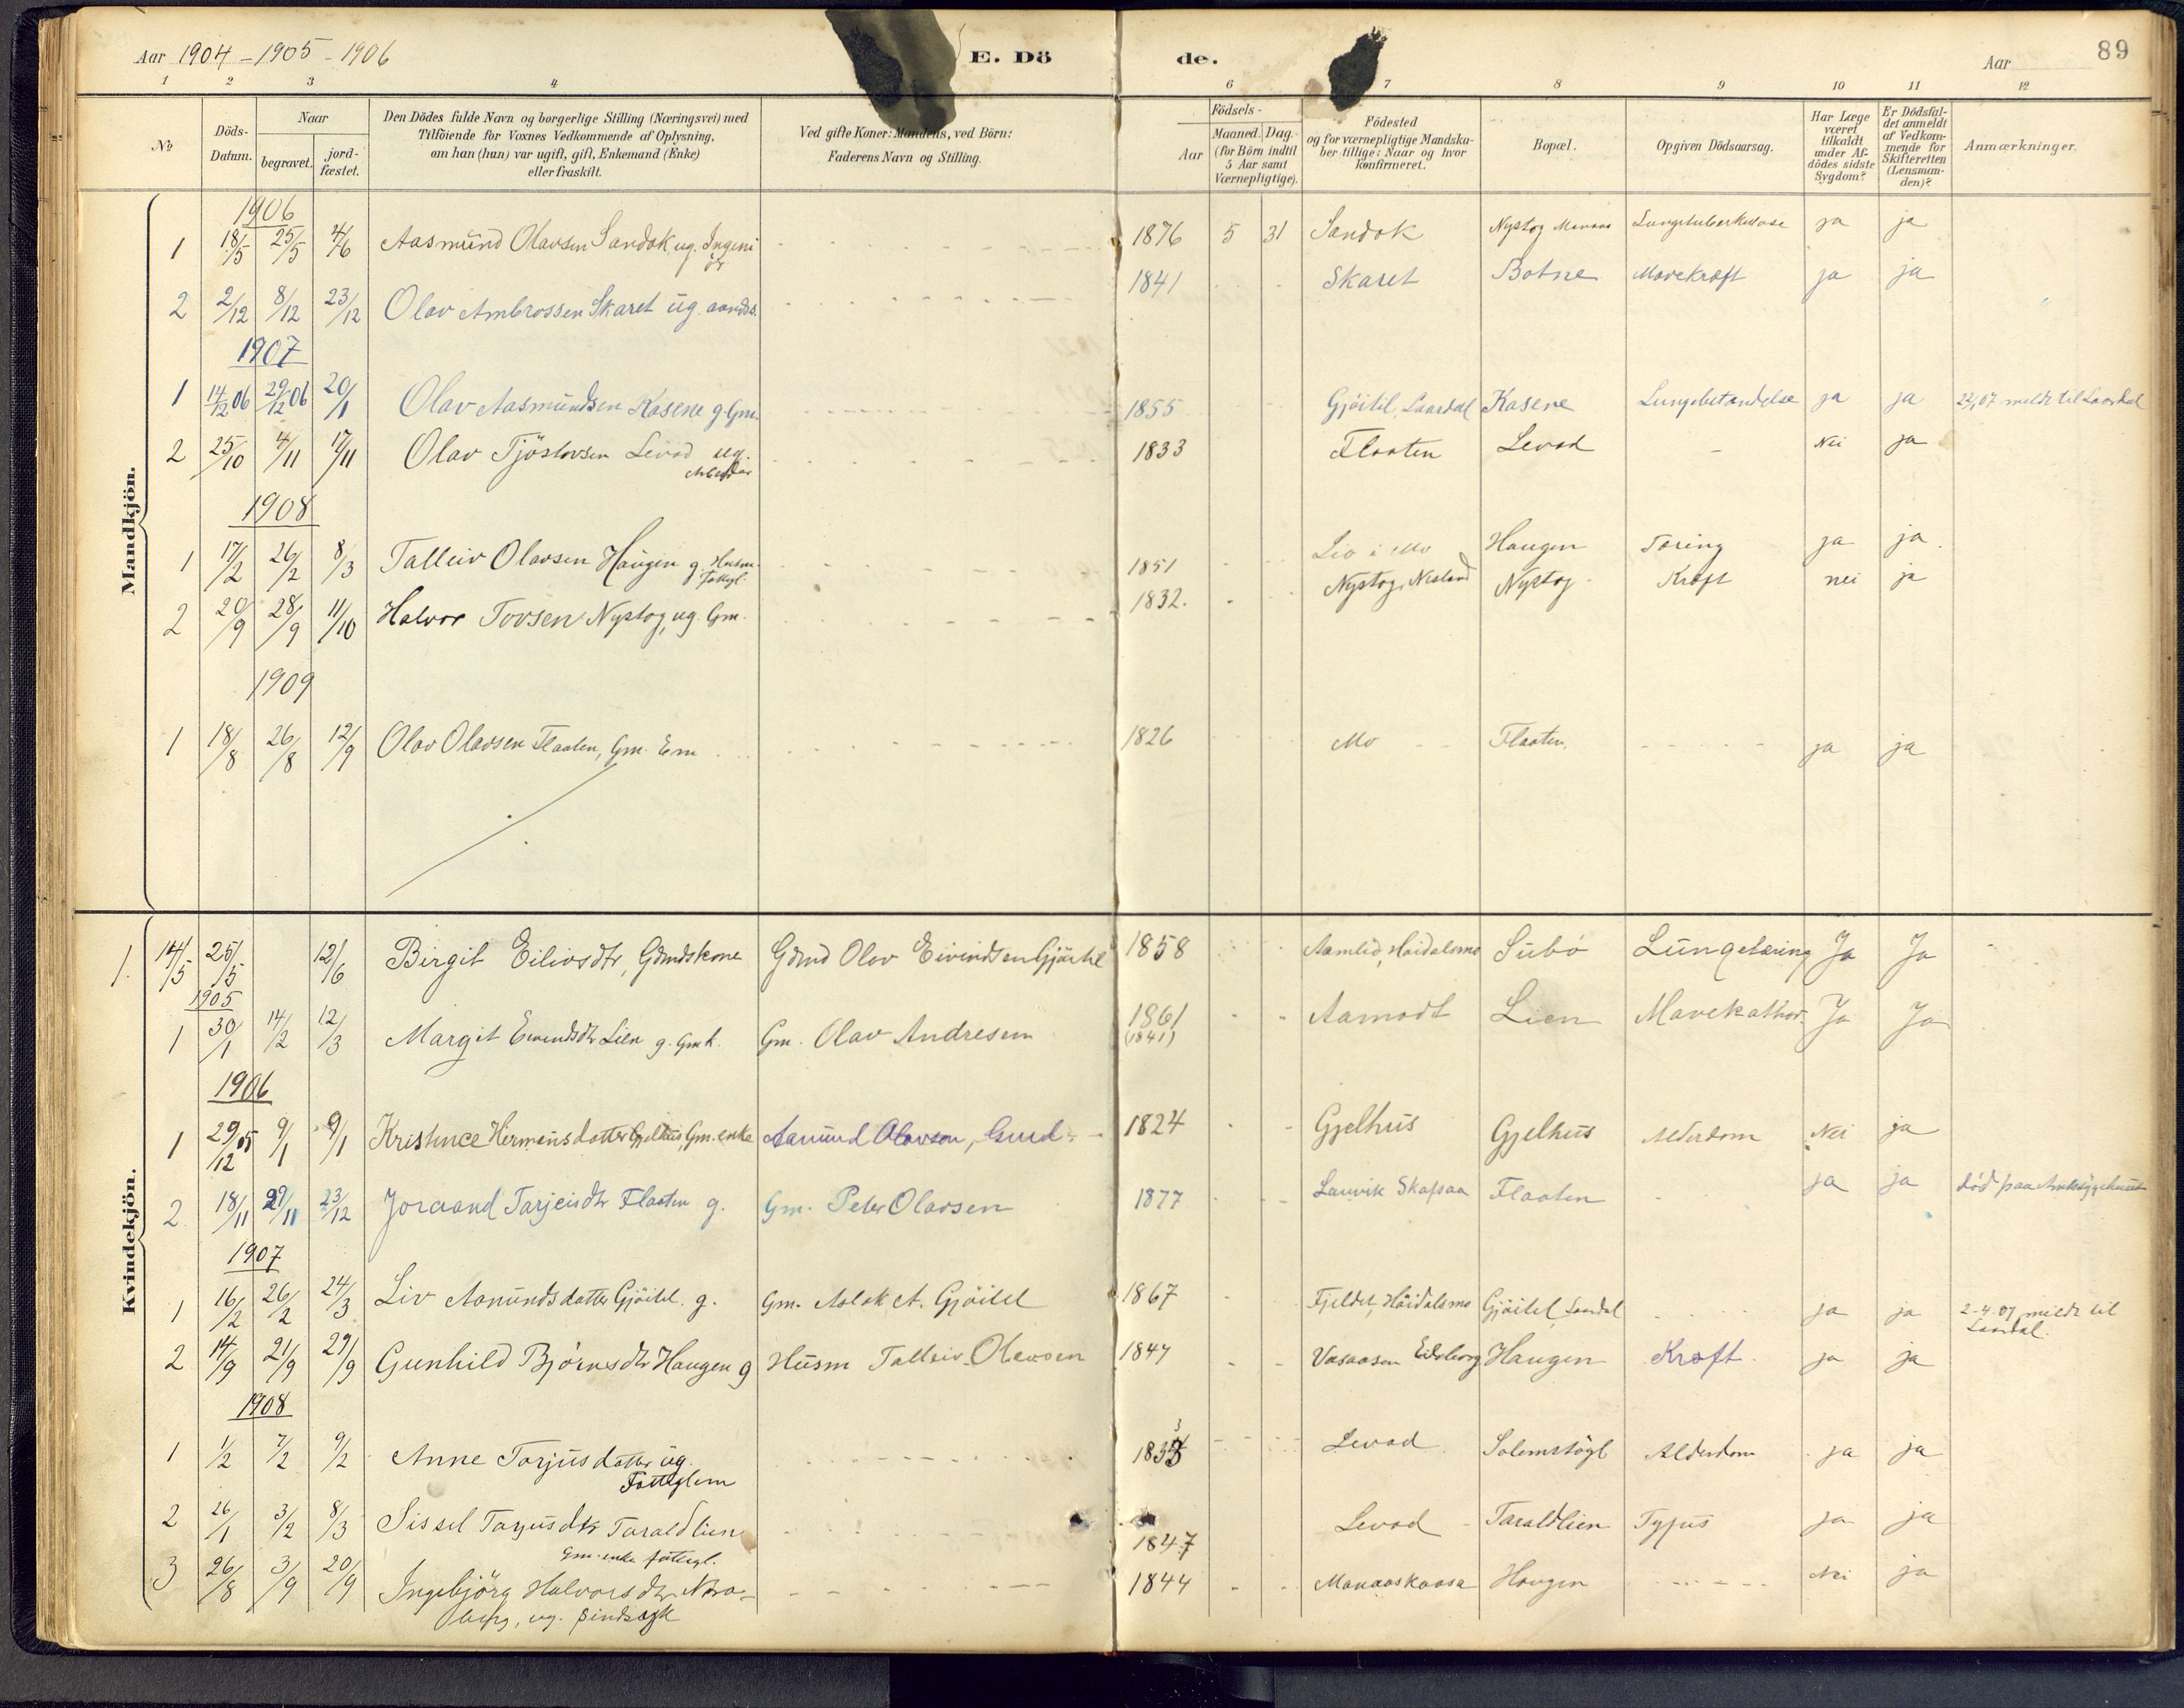 Aar 1904-1905-1906 E. Dö de. Aar 89
1 2 3 4 6 7 8 9 10 11 12
No Döds-Datum. Naar begravet. jord-fæstet.
Den Dödes fulde Navn og borgerlige Stilling (Næringsvei) med
Tilföiende for Voxnes Vedkommende af Oplysning,
om han (hun) var ugift, gift, Enkemand (Enke)
eller fraskilt.
Ved gifte Koner: Mandens, ved Börn:
Faderens Navn og Stilling.
Födsels-
Aar Maaned. Dag.
(for Börn indtil
5 Aar samt
Værnepligtige).
Födested
og for værnepligtige Mandska-
ber tillige: Naar og hvor
konfirmeret.
Bopæl.
Opgiven Dödsaarsag.
Har Læge
været
tilkaldt
under Af-
dödes sidste
Sygdom?
Er Dödsfal-
det anmeldt
af Vedkom-
mende for
Skifteretten
(Lensman-
den)?
Anmærkninger.
Mandkjön.
1906
1 18/5 25/5 4/6 Aasmund Olavsen Sandok ug. Ingeniör 1876 5 31 Sandok Nystog Manaas Lungetuberkulose ja ja
2 2/12 8/12 23/12 Olav Ambrossen Skaret ug. aandss. 1841 Skaret Botne Mavekræft ja ja
1907
1 14/12 06 29/12 06 20/1 Olav Aasmundsen Kasene g. Gm. 1855 Gjöitil, Laardal Kasene Lungebetændelse ja ja 22/1 07 meldt til Laardal
2 25/10 4/11 17/11 Olav Tjöstovsen Levod ug. Arbeider 1833 Flaaten Levod - Nei ja
1908
1 17/2 26/2 8/3 Talleiv Olavsen Haugen g. Husm. fattigl. 1851 Lio i Mo Haugen Tæring ja ja
2 20/9 28/9 11/10 Halvor Tovsen Nystog, ug. Gm. 1832. Nystog, Nesland Nystog Kræft nei ja
1909
1 18/8 26/8 12/9 Olav Olavsen Flaaten, Gm. Em 1826 Mo Flaaten. ja ja
Kvindekjön.
1. 14/5 25/5 12/6 Birgit Eilivsdtr, Gdmdskone Gdmd Olav Eivindsen Gjöitil 1858 Aamlid, Höidalsmo Subö Lungetæring Ja Ja
1905
1 30/1 14/2 12/3 Margit Eivindsdtr Lien g. Gmk. Gm. Olav Andresen 1861 (1841) Aamodt Lien Mavekathar. Ja Ja
1906
1 29/12 05 9/1 9/1 Kristence Hermansdatter Gjelhus, Gm. enke Aanund Olavson, Gmd. 1824 Gjelhus Gjelhus Alderdom Nei ja
2 18/11 29/11 23/12 Joraand Tarjeisdtr Flaaten g. Gm. Peter Olavsen 1877 Lauvik Skafsaa Flaaten ja ja död paa Amtssygehuset
1907
1 16/2 26/2 24/3 Liv Aanundsdatter Gjöitil. g. Gm. Aslak A. Gjöitil 1867 Fjeldet, Höidalsmo Gjöitil Laardal ja ja 2-4-07 meldt til Laardal.
2 14/9 21/9 29/9 Gunhild Björnsdtr Haugen g Husm Talleiv Olavsen 1847 Vasaasen Eidsborg Haugen Kræft. ja ja
1908
1 1/2 7/2 9/2 Anne Tarjusdatter ug. Fattiglem 1833 Levod. Solemstögl Alderdom ja ja
2 26/1 3/2 8/3 Sissel Tarjusdtr Taraldlien Gm. enke fattigl. 1847 Levod Taraldlien Tyfus ja ja
3 26/8 3/9 20/9 Ingebjörg Halvorsdtr Nora-
berg, ug. sindssyk 1844 Manaaskaasa Haugen Nei ja